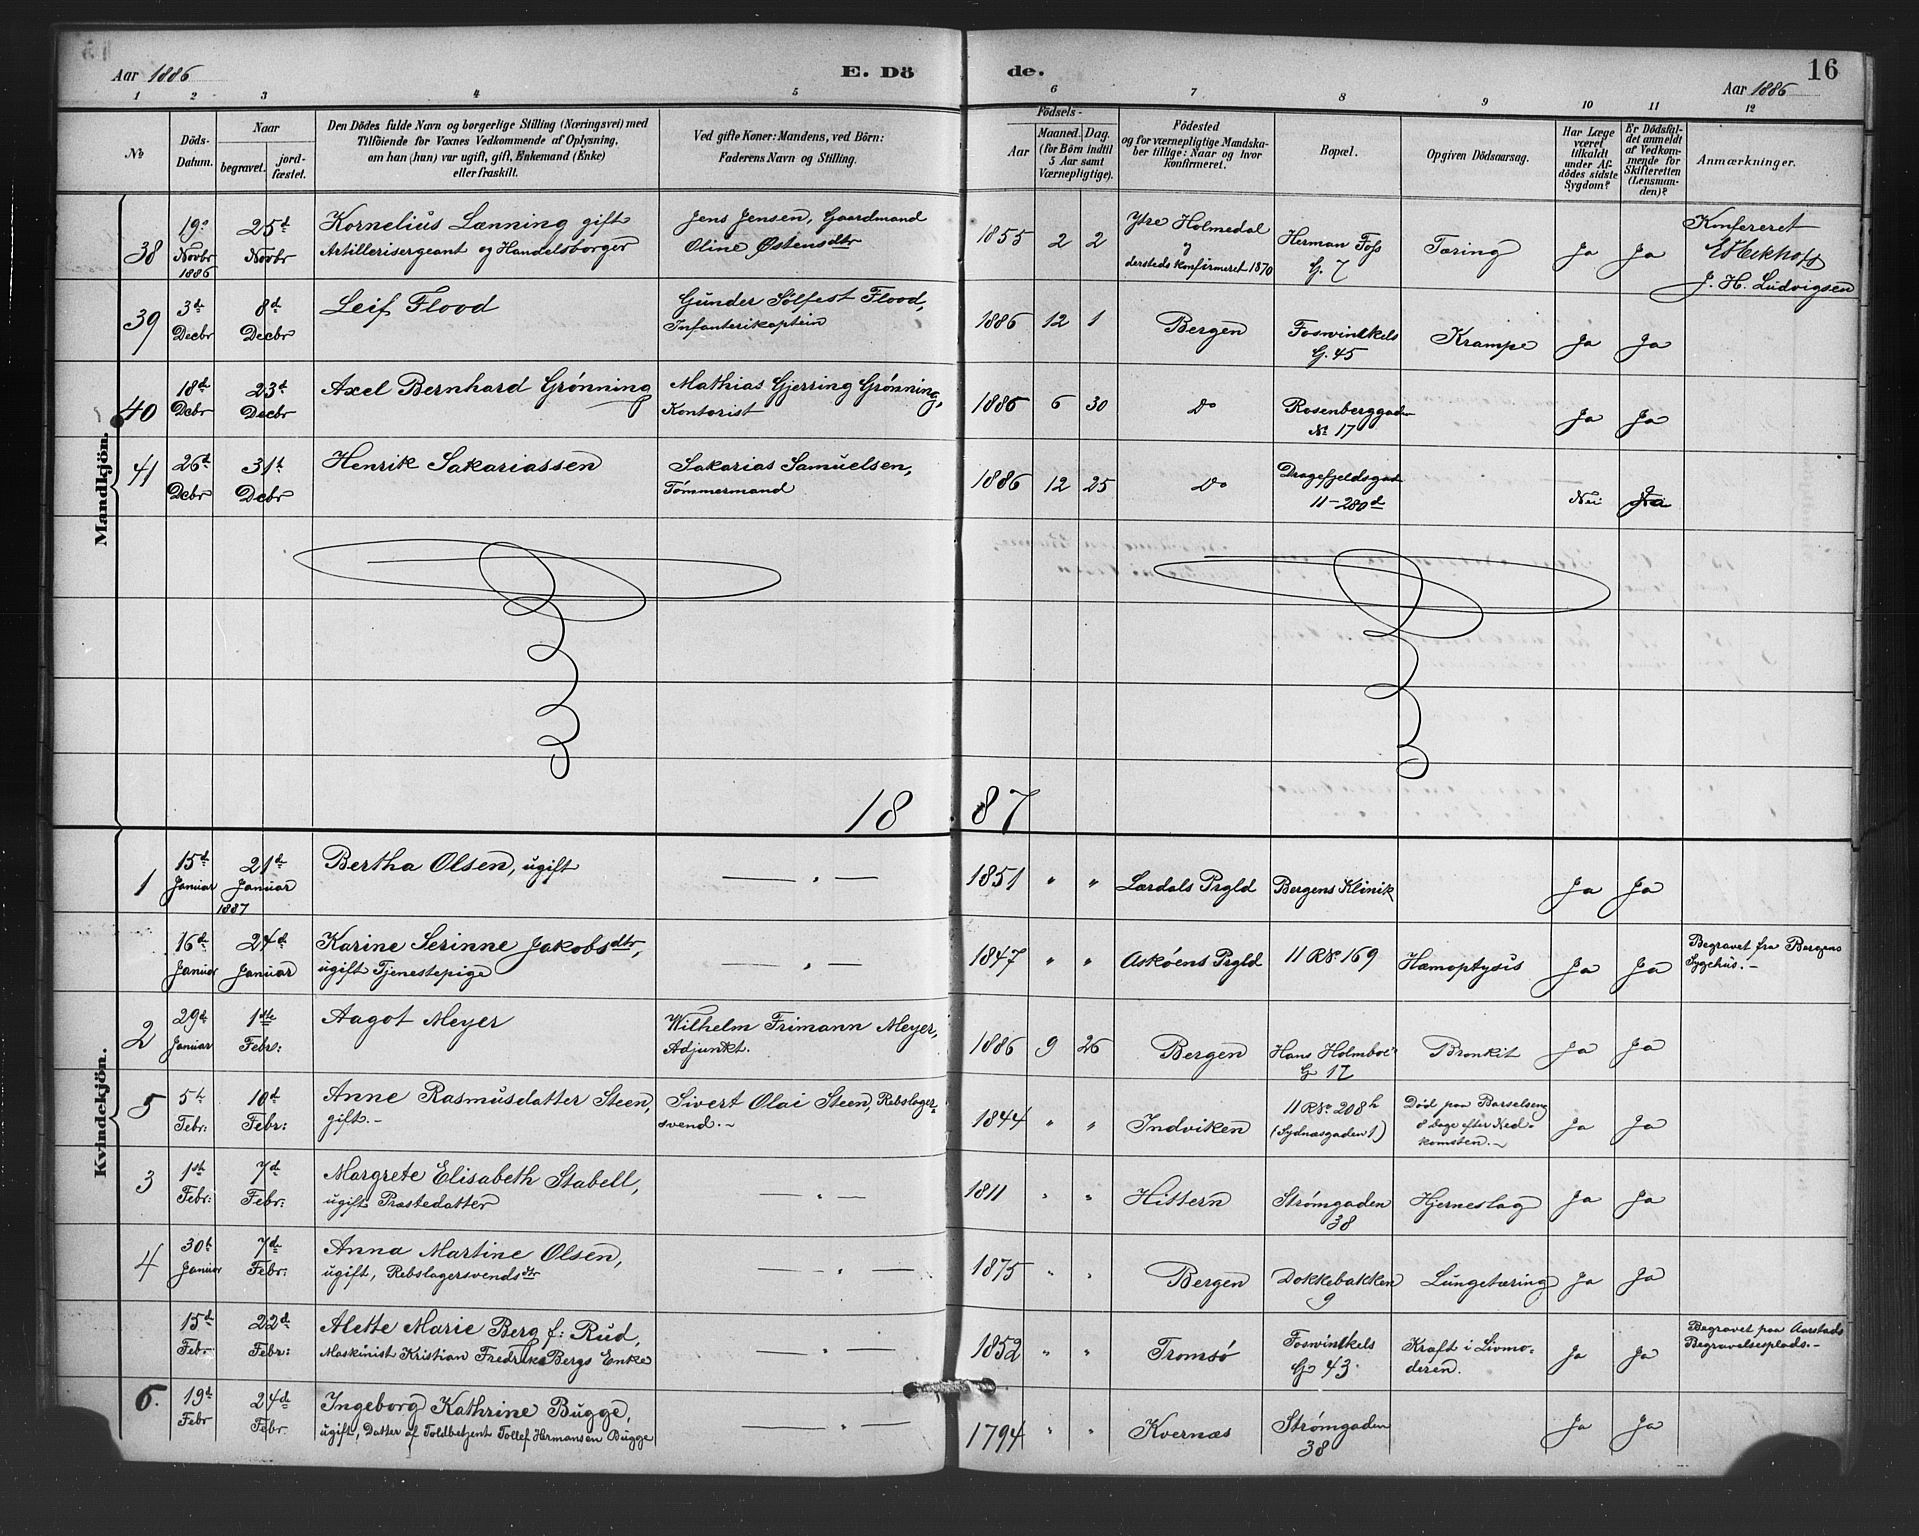 Aar 1886
E. Dö
de.
Aar 1886
16
1 2 3 4 5 6 7 8 9 10 11 12
No
Döds-
Datum.
Naar
begravet.
jord-
fæstet.
Den Dödes fulde Navn og borgerlige Stilling (Næringsvei) med
Tilföiende for Voxnes Vedkommende af Oplysning,
om han (hun) var ugift, gift, Enkemand (Enke)
eller fraskilt.
Ved gifte Koner: Mandens, ved Börn:
Faderens Navn og Stilling.
Födsels-
Aar
Maaned. Dag.
(for Börn indtil
5 Aar samt
Værnepligtige).
Födested
og for værnepligtige Mandska-
ber tillige: Naar og hvor
konfirmeret.
Bopæl.
Opgiven Dödsaarsag.
Har Læge
været
tilkaldt
under Af-
dödes sidste
Sygdom?
Er Dödsfal-
det anmeldt
af Vedkom-
mende for
Skifteretten
(Lensman-
den)?
Anmærkninger.
Mandkjön.
38
19de
Novbr
1886
25d
Novbr
Kornelius Lænning gift
Artillerisergeant og Handelsborger
Jens Jensen, Gaardmand
Oline Østensdtr
1855 2 2
Ytre Holmedal
dersteds konfirmeret 1870
Herman Foss
G. 7
Tæring
Ja Ja
Konfereret
J. H. Ludvigsen
39
3d
Decbr
8d
Decbr
Leif Flood
Gunder Sølfest Flood,
Infanterikaptein
1886 12 1
Bergen
Foswinkels
G. 45
Krampe
Ja Ja
40
18d
Dcbr
23d
Decbr
Axel Bernhard Grønning
Mathias Gjerring Grønning,
Kontorist
1886 6 30
Do
Rosenberggaden
No 17
Ja Ja
41
26d
Dcbr
31t
Dcbr
Henrik Sakariassen
Sakarias Samuelsen,
Tømmermand
1886 12 25
Do
Dragefjeldsgad
11-280d
Nei Ja
1887
Kvindekjön.
1
15d
Januar
21d
Januar
1887
Bertha Olsen, ugift
— „ —
1851 „ „
Lærdals Prgld
Bergens Klinik
Ja Ja
16d
Januar
24d
Januar
Karine Serinne Jakobsdtr,
ugift Tjenestepige
— „ —
1847 „ „
Askøens Prgld
11 RNo 169
Hæmoptysis
Ja Ja
Begravet fra Bergens
Sygehus.-
2
29d
Januar
1ste
Febr:
Aagot Meyer
Wilhelm Frimann Meyer,
Adjunkt.
1886 9 26
Bergen
Hans Holmboe's
G 17
Bronkit
Ja Ja
5
5t
Febr:
10d
Febr:
Anne Rasmusdatter Steen,
gift.-
Sivert Olai Steen, Rebslager-
svend.-
1844 „ „
Indviken
11 RNo 208h
(Sydnæsgaden 1)
Død paa Barselseng
8 Dage efter Ned-
komsten.-
Ja Ja
3
1st
Febr:
7d
Febr:
Margrete Elisabeth Stabell,
ugift Præstedatter
— „ —
1811 „ „
Hittern
Strømgaden
38
Hjerneslag
Ja Ja
4
30t
Januar
7d
Febr:
Anna Martine Olsen,
ugift, Rebslagersvendsdtr
— „ —
1875 „ „
Bergen
Dokkebakken
9
Lungetæring
Ja Ja
15d
Febr
22d
Febr:
Alette Marie Berg f: Rud,
Maskinist Kristian Fredrik Bergs Enke
— „ —
1852 „ „
Tromsø
Foswinkels
G 43.
Kræft i Livmo-
deren.
Ja Ja
Begravet paa Aarstads
Begravelsesplads.-
6.
19d
Febr
24d
Febr
Ingeborg Kathrine Bugge,
ugift, Datter af Toldbetjent Tollef Hermansen Bugge
— „ —
1794 „ „
Kvernæs
Strømgaden
38
Ja Ja